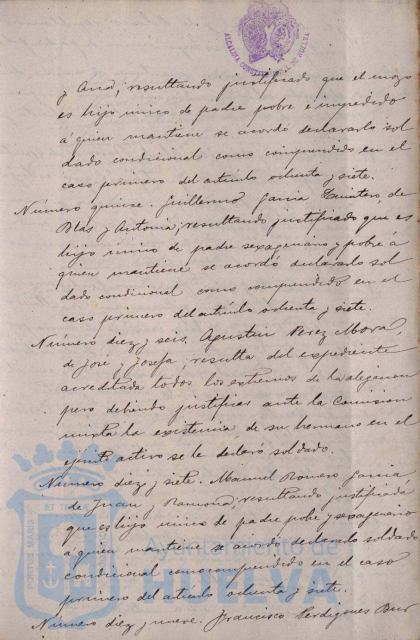 y Ana, resultando justificado que el mozo
es hijo único de padre pobre e impedido
á quien mantiene se acordó declararlo sol
dado condicional como comprendido en el
caso primero del artículo ochenta y siete.
Número quince. Guillermo Garcia de
Blas y Antonia, resultando justificado que es
hijo único de padre sexagenario y pobre á
quien mantiene se acordó declararlo sol
dado condicional como comprendido en el
caso primero del artículo ochenta y siete.
Número diez y seis. Agustin Perez Mora,
de José y Josefa, resulta del expediente
acreditado todos los extremos de la alegacion
pero debiendo justificar ante la Comision
mixta la existencia de su hermano en el
ejército activo se le declaró soldado.
Número diez y siete. Manuel Romero Garcia
de Juan y Ramona, resultando justificado
que es hijo único de padre pobre y sexagenario
á quien mantiene se acordó declararlo soldado
condicional como comprendido en el caso
primero del artículo ochenta y siete.
Número diez y nueve. Francisco Perdigones
Ayuntamiento de
HUELVA
PORTUS MARIS